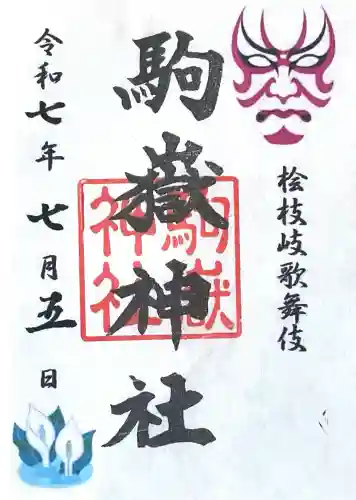 桧枝岐歌舞伎
駒嶽神社
駒嶽神社
令和七年七月五日